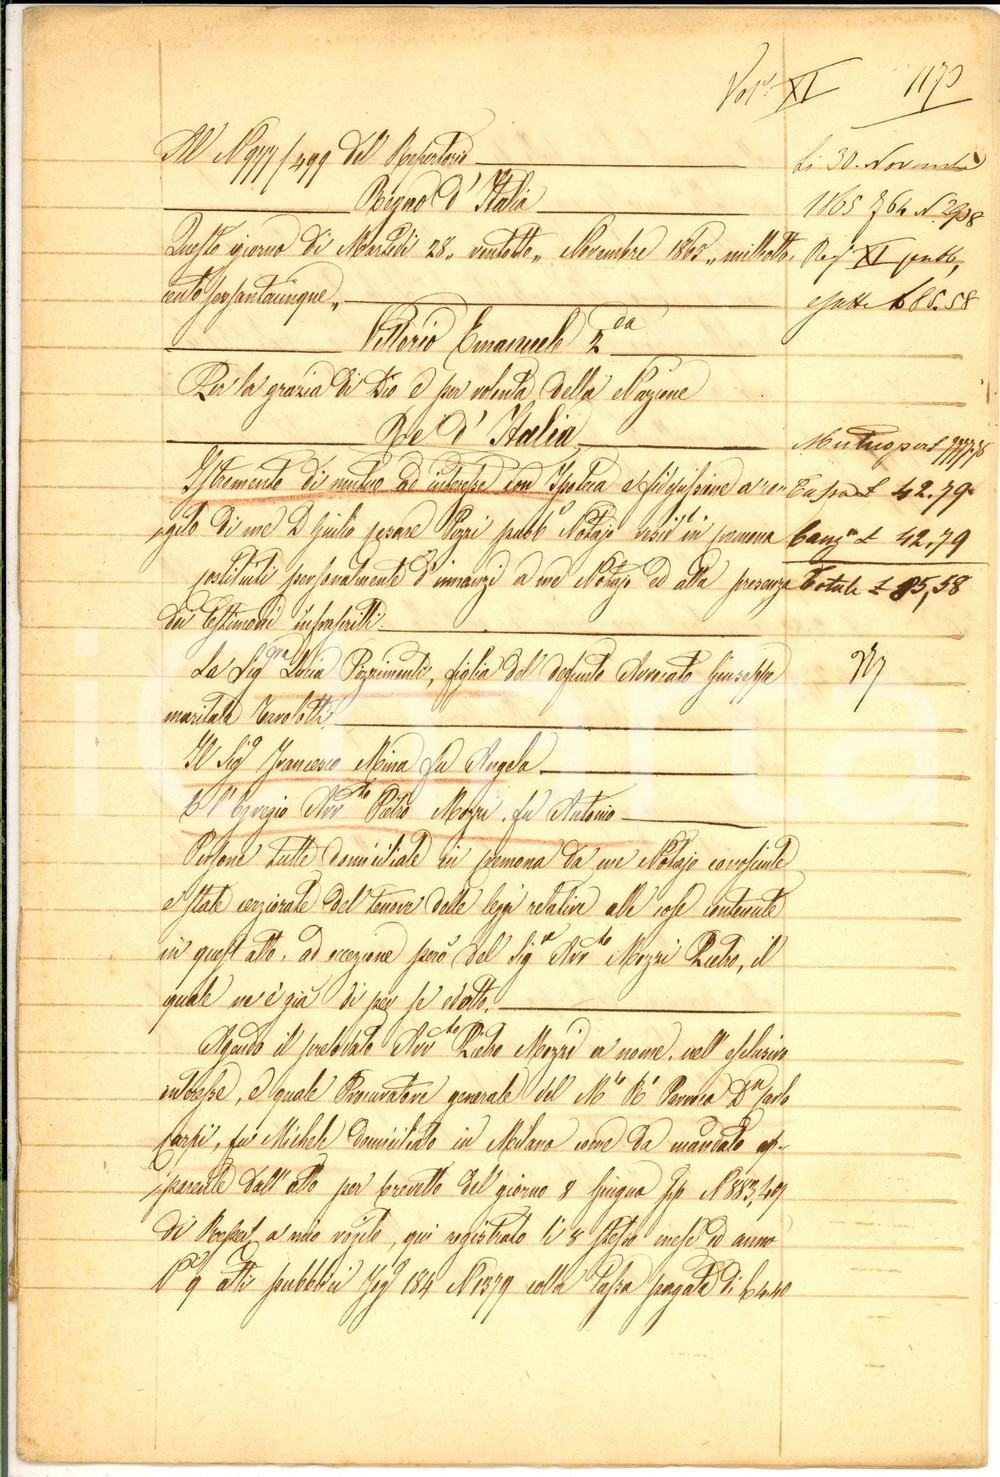 Vol. XI 1170
Al N 977/499 del Repertorio
Regno d'Italia
Questo giorno di Martedì 28,, ventotto,, Novembre 1865,, milleotto-
cento sessantacinque,,
Vittorio Emanuele 2do
Per la grazia di Dio e per volontà della Nazione
Re d'Italia
Istrumento di mutuo ad interesse con Ipoteca e fidejussione a ro-
gito di me D Giulio Cesare Pozzi pubbo Notajo residte in Cremona
Costituiti personalmente d'innanzi a me Notajo ed alla presenza
dei Testimonj infrascritti
La Sigra Livia Pizzimenti, figlia del defunto Avvocato Giuseppe
maritata Tavolotti
Il Sigr Francesco Mina fu Angelo
E l'Egregio Avvto Pietro Mozzi fu Antonio
Persone tutte domiciliate in Cremona da me Notajo conosciute
e state cerziorate del tenore delle leggi relative alle cose contenute
in quest'atto, ad eccezione però del Sigr Avvto Mozzi Pietro, il
quale ne è già di per se edotto.
Agendo il prelodato Avvto Pietro Mozzi a nome, nell'esclusivo
interesse, e quale Procuratore generale del Dn Carlo
Carpi, fu Michele domiciliato in Milano come da mandato ap-
parente dall'atto per brevetto del giorno 8 Giugno N 883,
di Repert a mio rogito, qui registrato li 8 stesso mese ed anno
Vol 9 atti pubblici Fog 184 N 1379 colla Tassa pagata di £ 4.40
Li 30. Novembre
1865 f 64 N. 2908
Reg XI pubb,
esatte £ 85.58
Tassa £ 42.79
£ 42.79
Totale £ 85,58